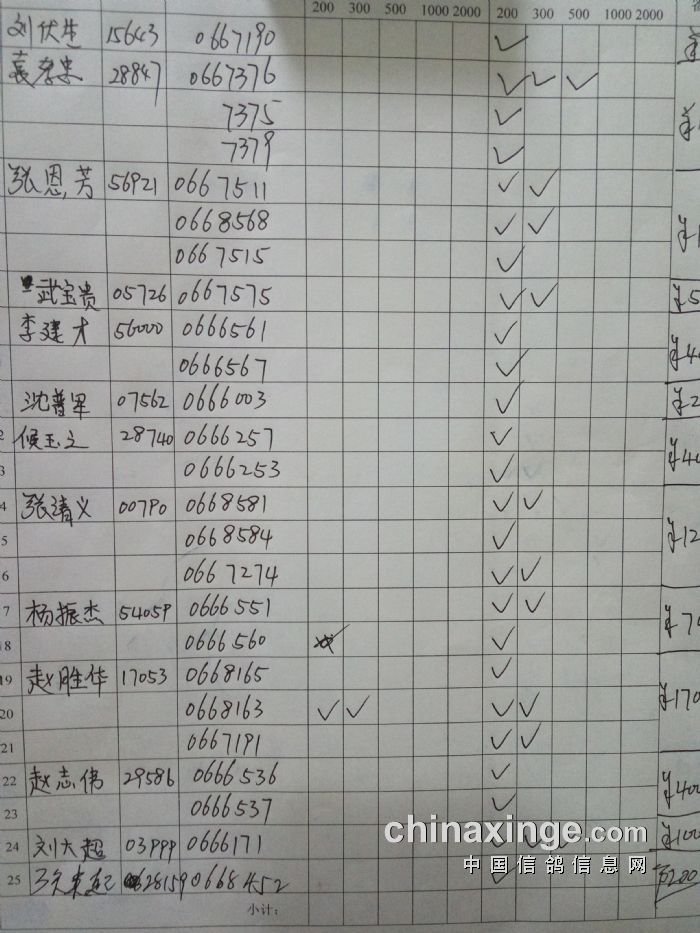 200 300 500 1000 2000 200 300 500 1000 2000
刘伏生 15643 0667190 ✓
28847 0667376 ✓ ✓ ✓
7375 ✓
7379 ✓
张恩芳 56921 0667511 ✓ ✓
0668568 ✓ ✓
0667515 ✓
武宝贵 05726 0667575 ✓ ✓ ¥5
李建才 56000 0666561 ✓
0666567 ✓ ¥40
沈普军 07562 0666003 ✓ ¥2
2 侯玉立 28740 0666257 ✓
3 0666253 ✓ ¥40
4 张清义 00790 0668581 ✓ ✓
5 0668584 ✓ ¥12
6 0667274 ✓ ✓
17 杨振杰 54059 0666551 ✓ ✓
18 0666560 ✓ ¥70
19 赵胜华 17053 0668165 ✓
20 0668163 ✓ ✓ ✓ ✓ ¥170
21 0667191 ✓ ✓
22 赵志伟 29586 0666536 ✓
23 0666537 ✓ ¥400
24 刘大超 03999 0666171 ✓ ✓ ✓ ¥100
25 28159 0668452 ✓ ¥200
小计:
chinaxinge.com
中国信鸽信息网